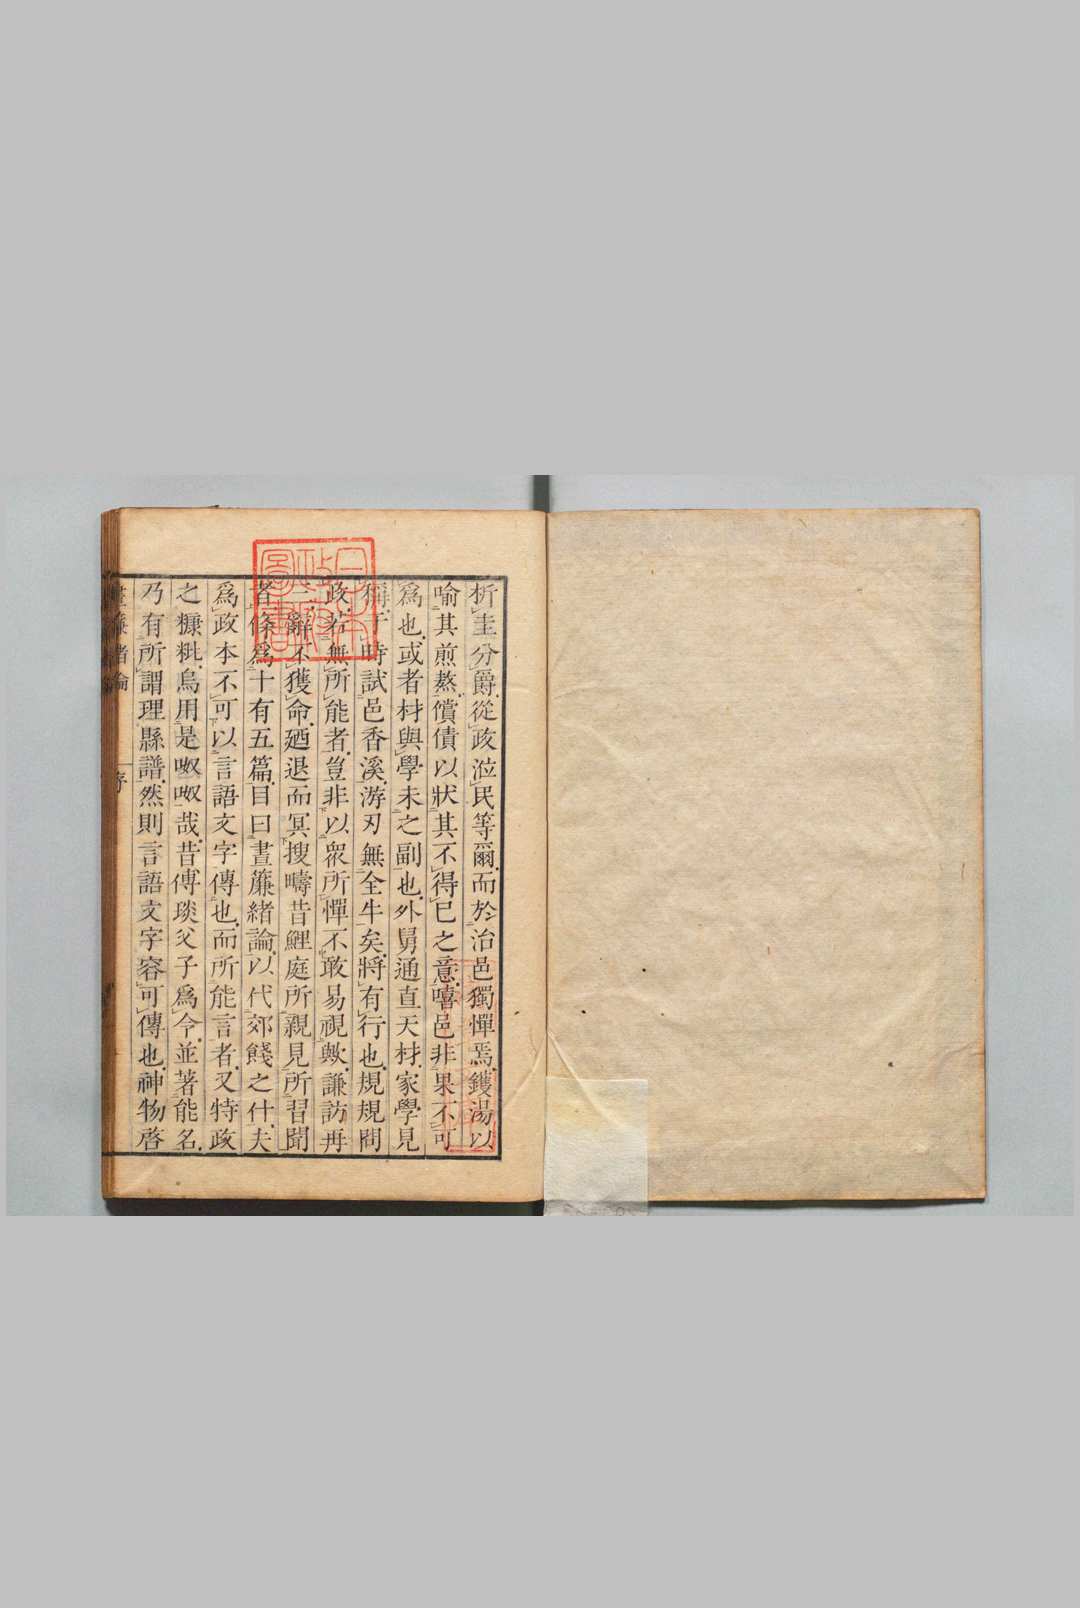 析圭分爵從政涖民等爾而於治邑獨憚焉鑊湯以
喻其煎熬償債以狀其不得已之意嘻邑非果不可
爲也或者材與學未之副也外舅通直天材家學見
稱于時試邑香溪游刃無全牛矣將有行也規規問
政若無所能者豈非以衆所憚不敢易視歟謙訪再
三辭不獲命廼退而冥搜疇昔鯉庭所親見所習聞
者條爲十有五篇目曰晝簾緒論以代郊餞之什夫
爲政本不可以言語文字傳也而所能言者又特政
之糠粃烏用是呶呶哉昔傅琰父子爲令並著能名
乃有所謂理縣譜然則言語文字容可傳也神物啓
晝簾緒論 序
日本
政府
圖書